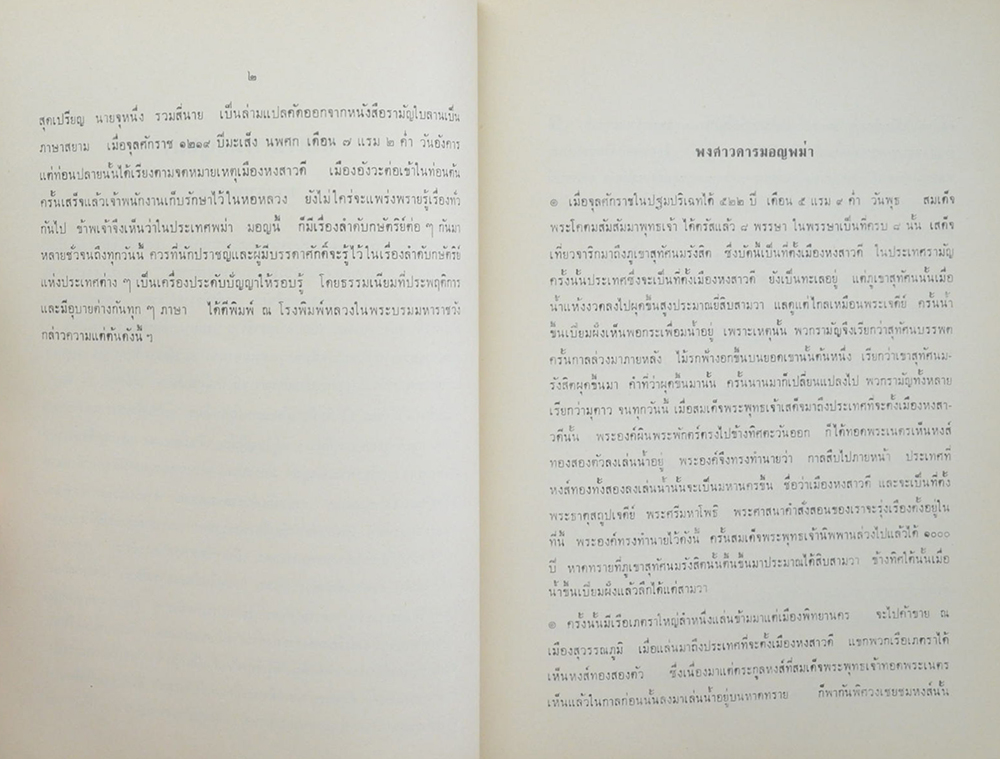 ๒
สุดเปรียญ นายจุหนึ่ง รวมสี่นาย เป็นล่ามแปลคัดออกจากหนังสือรามัญใบลานเป็น
ภาษาสยาม เมื่อจุลศักราช ๑๒๑๙ ปีมะเส็ง นพศก เดือน ๗ แรม ๒ ค่ำ วันอังคาร
แต่ท่อนปลายนั้นได้เรียงตามจดหมายเหตุเมืองหงสาวดี เมืองอังวะต่อเข้าในท่อนต้น
ครั้นเสร็จแล้วเจ้าพนักงานเก็บรักษาไว้ในหอหลวง ยังไม่ใคร่จะแพร่งพรายรู้เรื่องทั่ว
กันไป ข้าพเจ้าจึงเห็นว่าในประเทศพม่า มอญนี้ ก็มีเรื่องลำดับกษัตริย์ต่อ ๆ กันมา
หลายชั่วจนถึงทุกวันนี้ ควรที่นักปราชญ์และผู้มีบรรดาศักดิ์จะรู้ไว้ในเรื่องลำดับกษัตริย์
แห่งประเทศต่าง ๆ เป็นเครื่องประดับปัญญาให้รอบรู้ โดยธรรมเนียมที่ประพฤติการ
และมีอุบายต่างกันทุก ๆ ภาษา ได้ตีพิมพ์ ณ โรงพิมพ์หลวงในพระบรมมหาราชวัง
กล่าวความแต่ต้นดังนี้ ฯ
พงศาวดารมอญพม่า
๏ เมื่อจุลศักราชในปฐมปริเฉทได้ ๕๒๒ ปี เดือน ๕ แรม ๙ ค่ำ วันพุธ สมเด็จ
พระโคดมสัมสัมมาพุทธเจ้า ได้ตรัสแล้ว ๘ พรรษา ในพรรษาเป็นที่ครบ ๘ นั้น เสด็จ
เที่ยวจาริกมาถึงภูเขาสุทัศนมรังสิต ซึ่งบัดนี้เป็นที่ตั้งเมืองหงสาวดี ในประเทศรามัญ
ครั้งนั้นประเทศซึ่งจะเป็นที่ตั้งเมืองหงสาวดี ยังเป็นทะเลอยู่ แต่ภูเขาสุทัศนนั้นเมื่อ
น้ำแห้งงวดลงไปผุดขึ้นสูงประมาณยี่สิบสามวา แลดูแต่ไกลเหมือนพระเจดีย์ ครั้นน้ำ
ขึ้นเปี่ยมฝั่งเห็นพอกระเพื่อมน้ำอยู่ เพราะเหตุนั้น พวกรามัญจึงเรียกว่าสุทัศนบรรพต
ครั้นกาลล่วงมาภายหลัง ไม้รกฟ้างอกขึ้นบนยอดเขานั้นต้นหนึ่ง เรียกว่าเขาสุทัศนม-
รังสิตผุดขึ้นมา คำที่ว่าผุดขึ้นมานั้น ครั้นนานมาก็เปลี่ยนแปลงไป พวกรามัญทั้งหลาย
เรียกว่ามุตาว จนทุกวันนี้ เมื่อสมเด็จพระพุทธเจ้าเสด็จมาถึงประเทศที่จะตั้งเมืองหงสา-
วดีนั้น พระองค์ผินพระพักตร์ตรงไปข้างทิศตะวันออก ก็ได้ทอดพระเนตรเห็นหงส์
ทองสองตัวลงเล่นน้ำอยู่ พระองค์จึงทรงทำนายว่า กาลสืบไปภายหน้า ประเทศที่
หงส์ทองทั้งสองลงเล่นน้ำนั้นจะเป็นมหานครขึ้น ชื่อว่าเมืองหงสาวดี และจะเป็นที่ตั้ง
พระธาตุสถูปเจดีย์ พระศรีมหาโพธิ พระศาสนาคำสั่งสอนของเราจะรุ่งเรืองตั้งอยู่ใน
ที่นี้ พระองค์ทรงทำนายไว้ดังนี้ ครั้นสมเด็จพระพุทธเจ้านิพพานล่วงไปแล้วได้ ๑๐๐๐
ปี หาดทรายที่ภูเขาสุทัศนมรังสิตนั้นตื้นขึ้นมาประมาณได้สิบสามวา ข้างทิศใต้นั้นเมื่อ
น้ำขึ้นเปี่ยมฝั่งแล้วลึกได้แต่สามวา
๏ ครั้งนั้นมีเรือเภตราใหญ่ลำหนึ่งแล่นข้ามมาแต่เมืองพิทยานคร จะไปค้าขาย ณ
เมืองสุวรรณภูมิ เมื่อแล่นมาถึงประเทศที่จะตั้งเมืองหงสาวดี แขกพวกเรือเภตราได้
เห็นหงส์ทองสองตัว ซึ่งเนื่องมาแต่ตระกูลหงส์ที่สมเด็จพระพุทธเจ้าทอดพระเนตร
เห็นแล้วในกาลก่อนนั้นลงมาเล่นน้ำอยู่บนหาดทราย ก็พากันพิศวงเชยชมหงส์นั้น